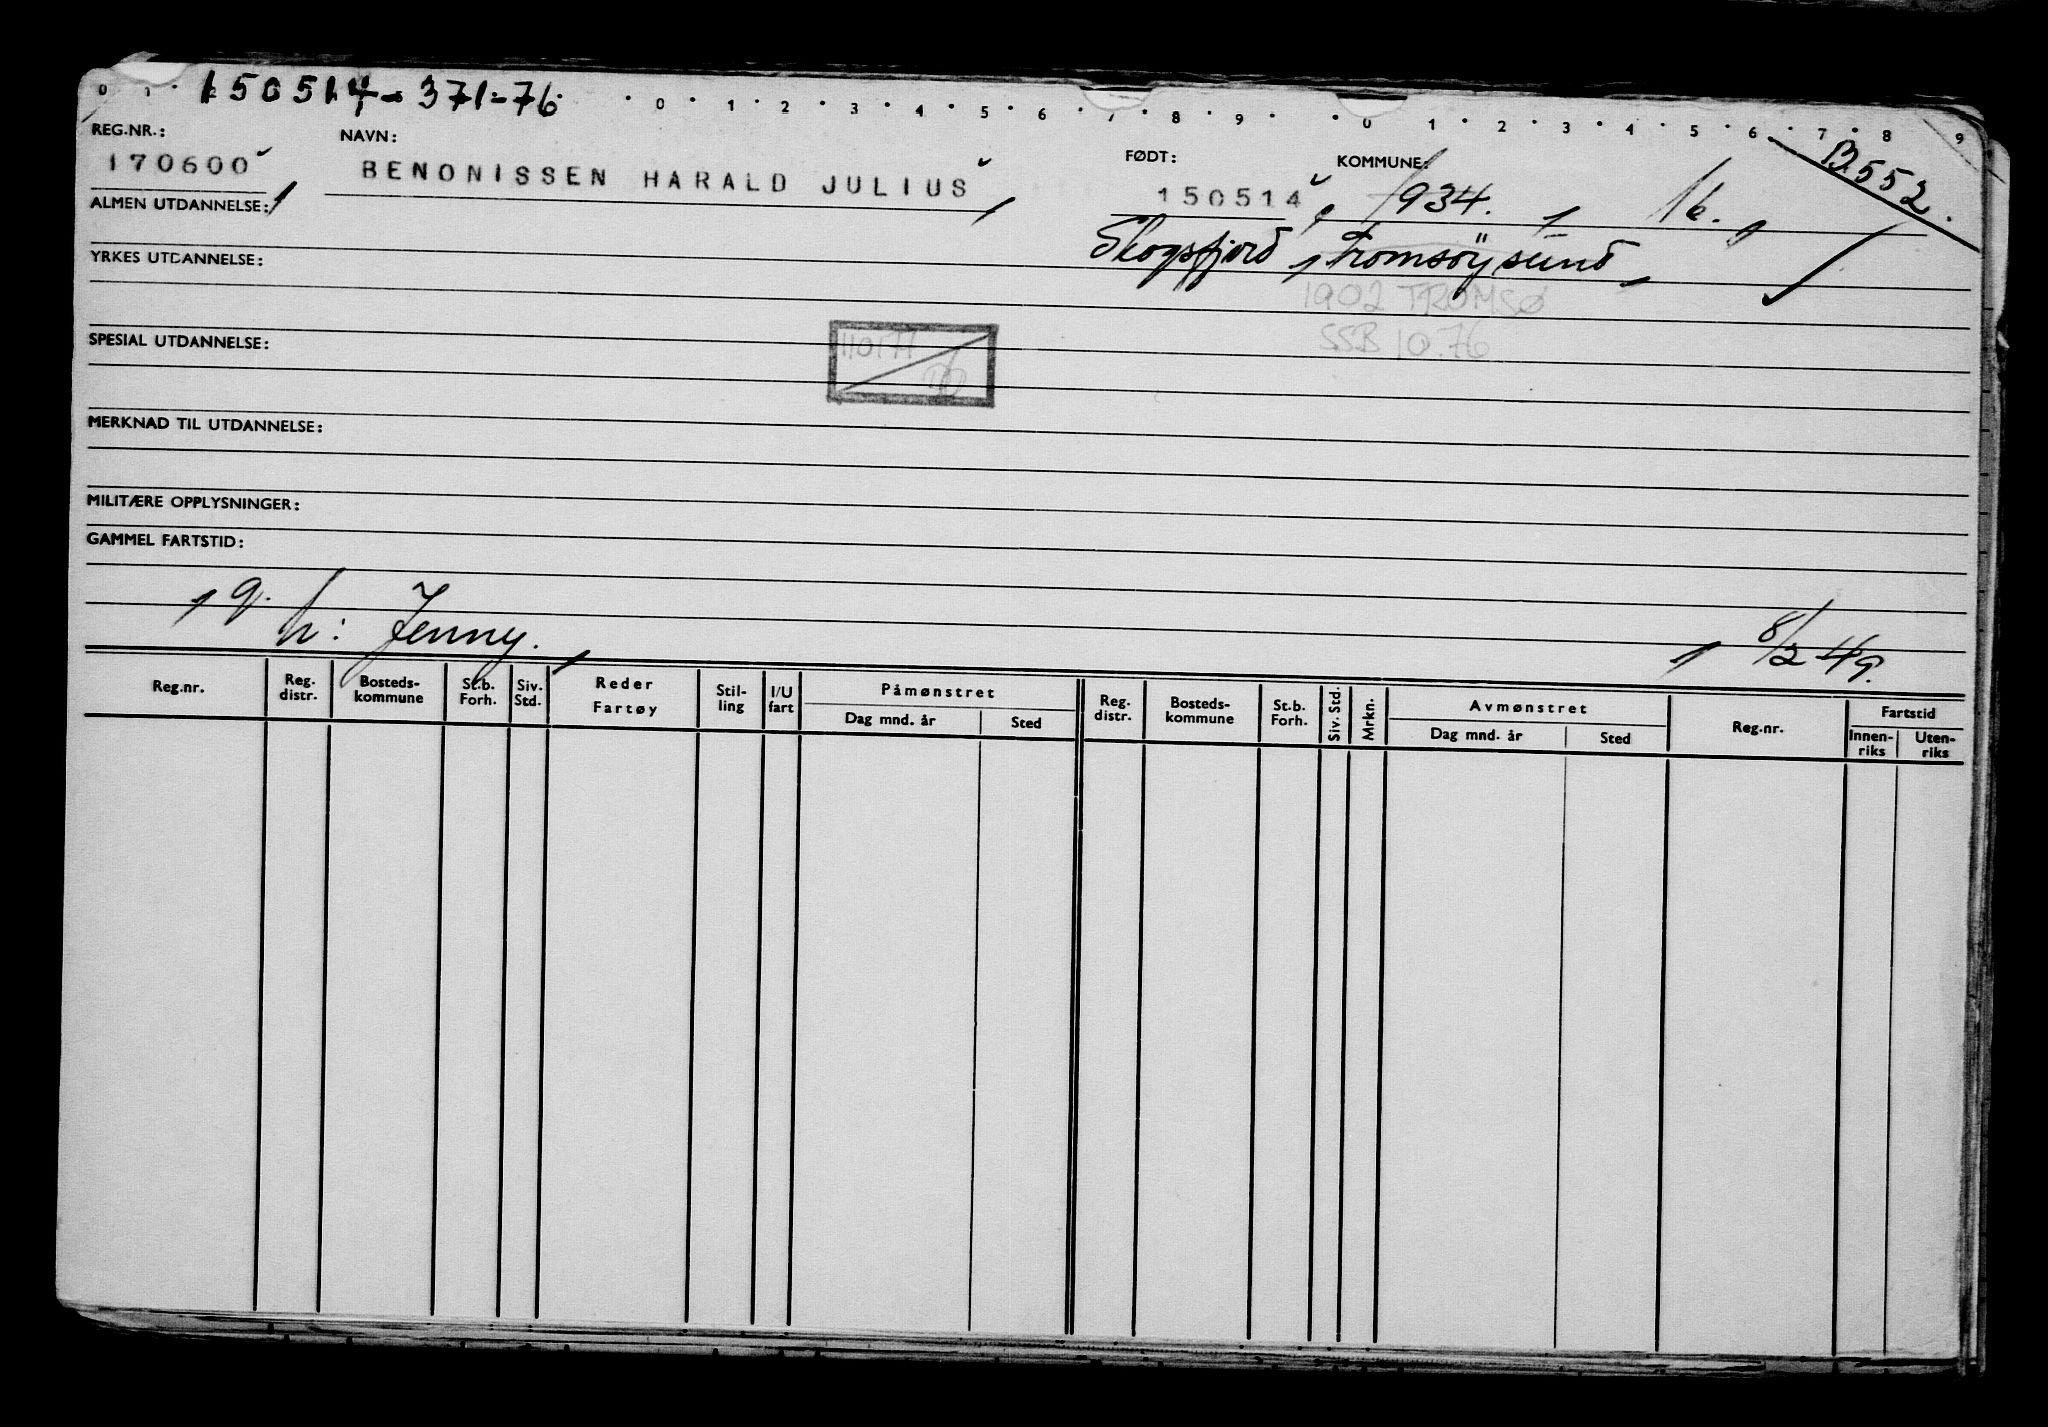 150514-371-76
0 1 0 1 2 3 4 5 6 7 8 9 0 1 2 3 4 5 6 7 8 9
REG.NR.: NAVN: FØDT: KOMMUNE: B552.
170600 BENONISSEN HARALD JULIUS 150514 1934. 16.
ALMEN UTDANNELSE: Skogsfjord, Tromsöysund
YRKES UTDANNELSE:
1902 TROMSØ
SPESIAL UTDANNELSE: SSB 10.76
MERKNAD TIL UTDANNELSE:
MILITÆRE OPPLYSNINGER:
GAMMEL FARTSTID:
g. h: Jenny. 8/2 49.
Reg.nr. Reg. distr. Bosteds- kommune St.b. Forh. Siv. Std. Reder Fartøy Stil- ling I/U fart Påmønstret Reg. distr. Bosteds- kommune St.b. Forh. Siv. Std. Mrkn. Avmønstret Reg.nr. Fartstid
Dag mnd. år Sted Dag mnd. år Sted Innen- riks Uten- riks